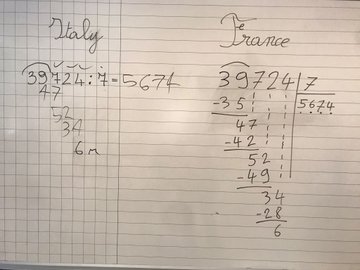 Italy
39724:7=5674
47
52
34
6 r
France
39724 7
-35 5674
47
-42
52
-49
34
-28
6